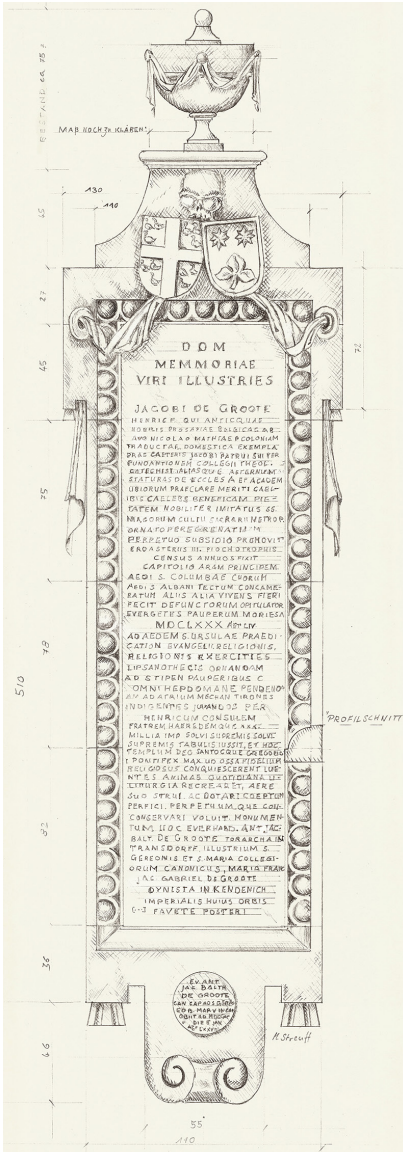 BESTAND ca. 75
MAß NOCH ZU KLÄREN!
130
110
65
27
45
72
75
78
510
82
35
49
55
110
PROFILSCHNITT
DOM
MEMMORIAE
VIRI ILLUSTRIES
JACOBI DE GROOTE
HENRICF. QUI ANTICQUAS
NOBILIS PROSAPIAE BELGICAE AB
AVO NICOLAO MATHIAE F. COLONIAM
TRADUCTAE DOMESTICA EXEMPLA
PRAE CAETERIS JACOBI PATRUI SUI PER
FUNDATIONEM COLLEGII THEOL.
STATURAS DE ECCLES A ET ACADEM
UBIORUM PRAECLARE MERITI CAEL
IBIS CAELEBS BENEFICAM PIE
TATEM NOBILITER IMITATUS SS.
MAGORUM CULTU SACRARUM ETROP.
PERPETUO SUBSIDIO PROMOVIT
CENSUS ANNUOS FIXIT
CAPITOLIO ARAM PRINCIPEM
AEDI S. COLUMBAE CHORUM
AEDIS ALBANI TECTUM CONCAME-
RATUM ALIIS ALIA VIVENS FIERI
FECIT DEFUNCTORUM OPITULATOR
EVERGETES PAUPERUM MORIENS
MDCLXXX AET LIV
AD AEDEM S. URSULAE PRAEDI-
CATION EVANGELII. RELIGIONIS,
RELIGIONIS EXERCITIES
LIPSANOTHECIS ORNANDAM
AD STIPEN PAUPERIBUS C
OMNI HEPDOMANE PENDENO
AN AD ATRIUM MECHAN TIRONES
INDIGENTES JUVANDOS PER
HENRICUM CONSULEM
FRATREM HAEREDEMQUE
MILLIA IMP SOLVI SUPREMIS SOLVI
SUPREMIS TABULIS IUSSIT, ET HOC
TEMPLUM DEO SANTOCQUE GREGORIO
I PONIFEX MAX UO OSSA FIDELIUM
RELIGIOSUS CONQUIESCERENT LUE
NTES ANIMAS QUOTIDIANA
LITURGIA RECREARET, AERE
SUO STRUI AC DOTARI COEPTUM
PERFICI. PERPETUUM. QUE CON-
CONSERVARI VOLUIT. MONUMEN-
TUM HOC EVERHARD. ANT. JAC.
BALT. DE GROOTE TORARCHA IN
TRANSDORFF. ILLUSTRIUM S.
GEREONIS ET S. MARIA COLLEGI-
ORUM CANONICUS, MARIA FRAN
JAC GABRIEL DE GROOTE
DYNISTA IN KENDENICH
IMPERIALIS HUIUS ORBIS
(...) FAVETE POSTERI
EV. ANT
JAC BALTH
DE GROOTE
M. Streuff